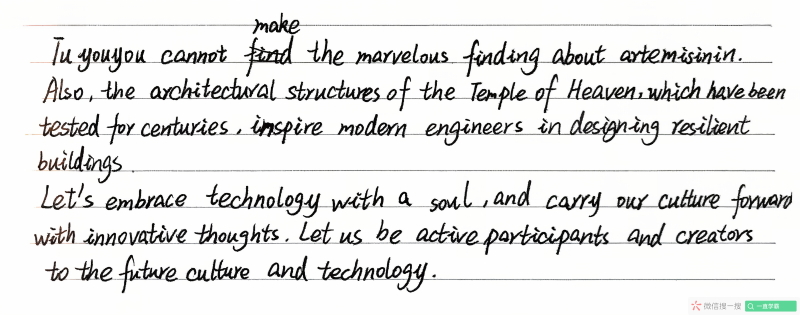 make
Tu youyou cannot find the marvelous finding about artemisinin.
Also, the architectural structures of the Temple of Heaven, which have been
tested for centuries, inspire modern engineers in designing resilient
buildings.
Let's embrace technology with a soul, and carry our culture forward
with innovative thoughts. Let us be active participants and creators
to the future culture and technology.
微信搜一搜 一直学霸